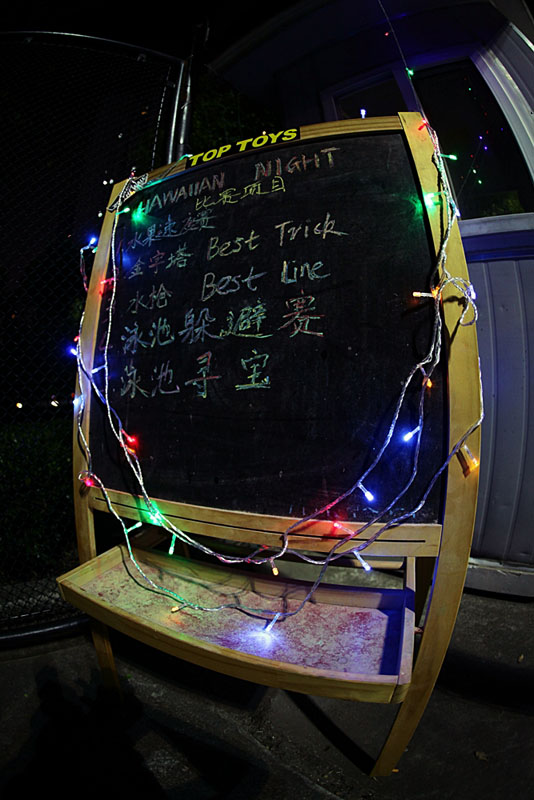 TOP TOYS
HAWAIIAN NIGHT
比赛项目
水果速速赛
金字塔 Best Trick
水枪 Best Line
泳池躲避赛
泳池寻宝